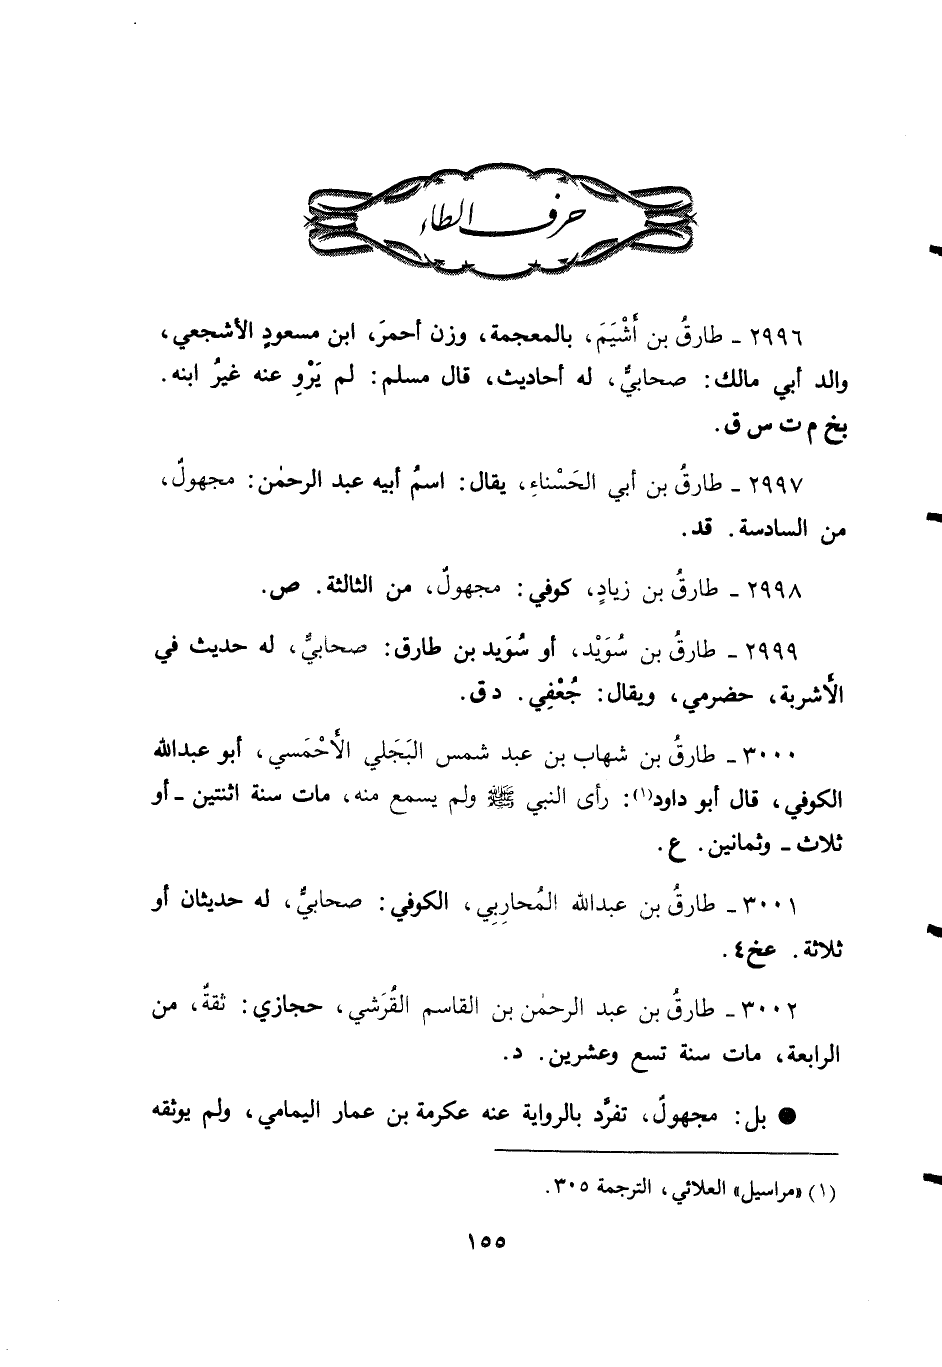 حرف الطاء
٢٩٩٦ ـ طارقُ بن أَشْيَمَ، بالمعجمة، وزن أحمرَ، ابن مسعودٍ الأشجعي،
والد أبي مالك: صحابيٌّ، له أحاديث، قال مسلم: لم يَرْوِ عنه غيرُ ابنه.
بخ م ت س ق.
٢٩٩٧ ـ طارقُ بن أبي الحَسْناءِ، يقال: اسمُ أبيه عبد الرحمٰن: مجهولٌ،
من السادسة. قد.
٢٩٩٨ ـ طارقُ بن زيادٍ، كوفي: مجهولٌ، من الثالثة. ص.
٢٩٩٩ ـ طارقُ بن سُوَيْد، أو سُوَيد بن طارق: صحابيٌّ، له حديث في
الأَشربة، حضرمي، ويقال: جُعْفِي. د ق.
٣٠٠٠ ـ طارقُ بن شهاب بن عبد شمس البَجَلي الأَحْمَسي، أبو عبدالله
الكوفي، قال أبو داود(١): رأى النبي ﷺ ولم يسمع منه، مات سنة اثنتين ـ أو
ثلاث ـ وثمانين. ع.
٣٠٠١ ـ طارقُ بن عبدالله المُحارِبِي، الكوفي: صحابيٌّ، له حديثان أو
ثلاثة. عخ ٤.
٣٠٠٢ ـ طارقُ بن عبد الرحمٰن بن القاسم القُرَشي، حجازي: ثقةٌ، من
الرابعة، مات سنة تسع وعشرين. د.
● بل: مجهولٌ، تفرَّد بالرواية عنه عكرمة بن عمار اليمامي، ولم يوثقه
(١) «مراسيل» العلائي، الترجمة ٣٠٥.
١٥٥